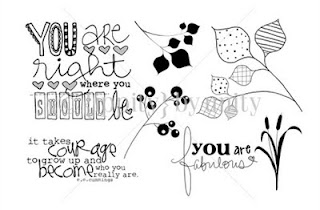 YOU are
right
where you
SHOULD be
it takes
courage
to grow up and
become who you
really are.
e.e. cummings
you are
fabulous